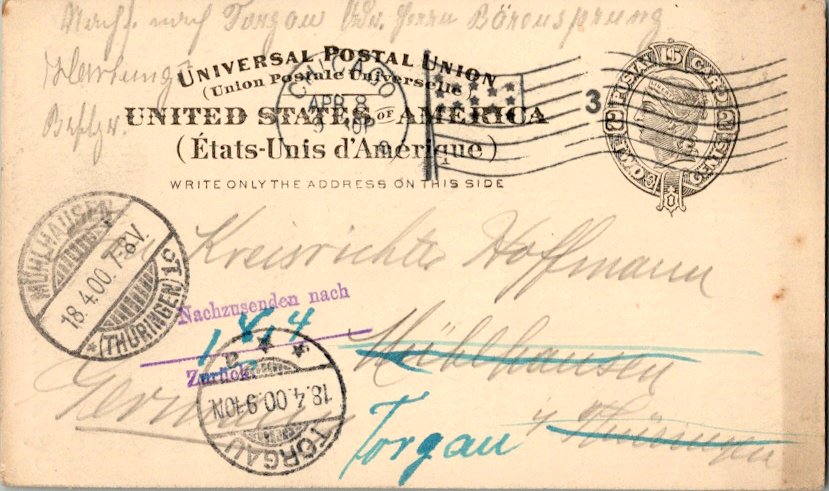 nach Torgau Herrn Bärensprung
UNIVERSAL POSTAL UNION
(Union Postale Universelle)
UNITED STATES OF AMERICA
(États-Unis d'Amérique)
WRITE ONLY THE ADDRESS ON THIS SIDE
CHICAGO
APR 8
3
Kreisrichter Hoffmann
MÜHLHAUSEN
18.4.00 7-8V.
(THÜRINGEN) 1c
Nachzusenden nach
18/4
Zurück
Mühlhausen
i/ Thüringen
Germany
Torgau
18.4.00.9-10N.
TORGAU